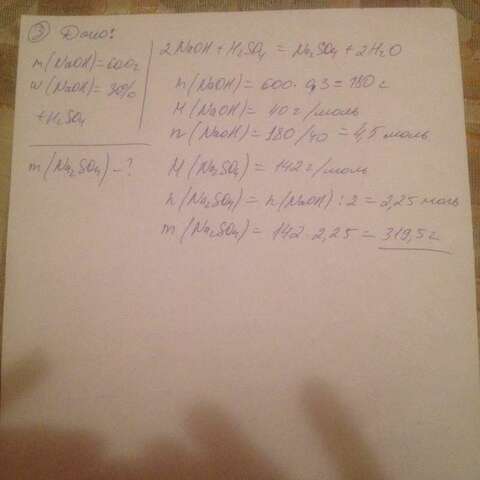 ③ Дано:
m(NaOH)=600г
w(NaOH)=30%
+H₂SO₄
m(Na₂SO₄)-?
2NaOH + H₂SO₄ = Na₂SO₄ + 2H₂O
m(NaOH)=600·0,3=180г
M(NaOH)=40г/моль
n(NaOH)=180/40=4,5моль
M(Na₂SO₄)=142г/моль
n(Na₂SO₄)=n(NaOH):2=2,25моль
m(Na₂SO₄)=142·2,25=319,5г